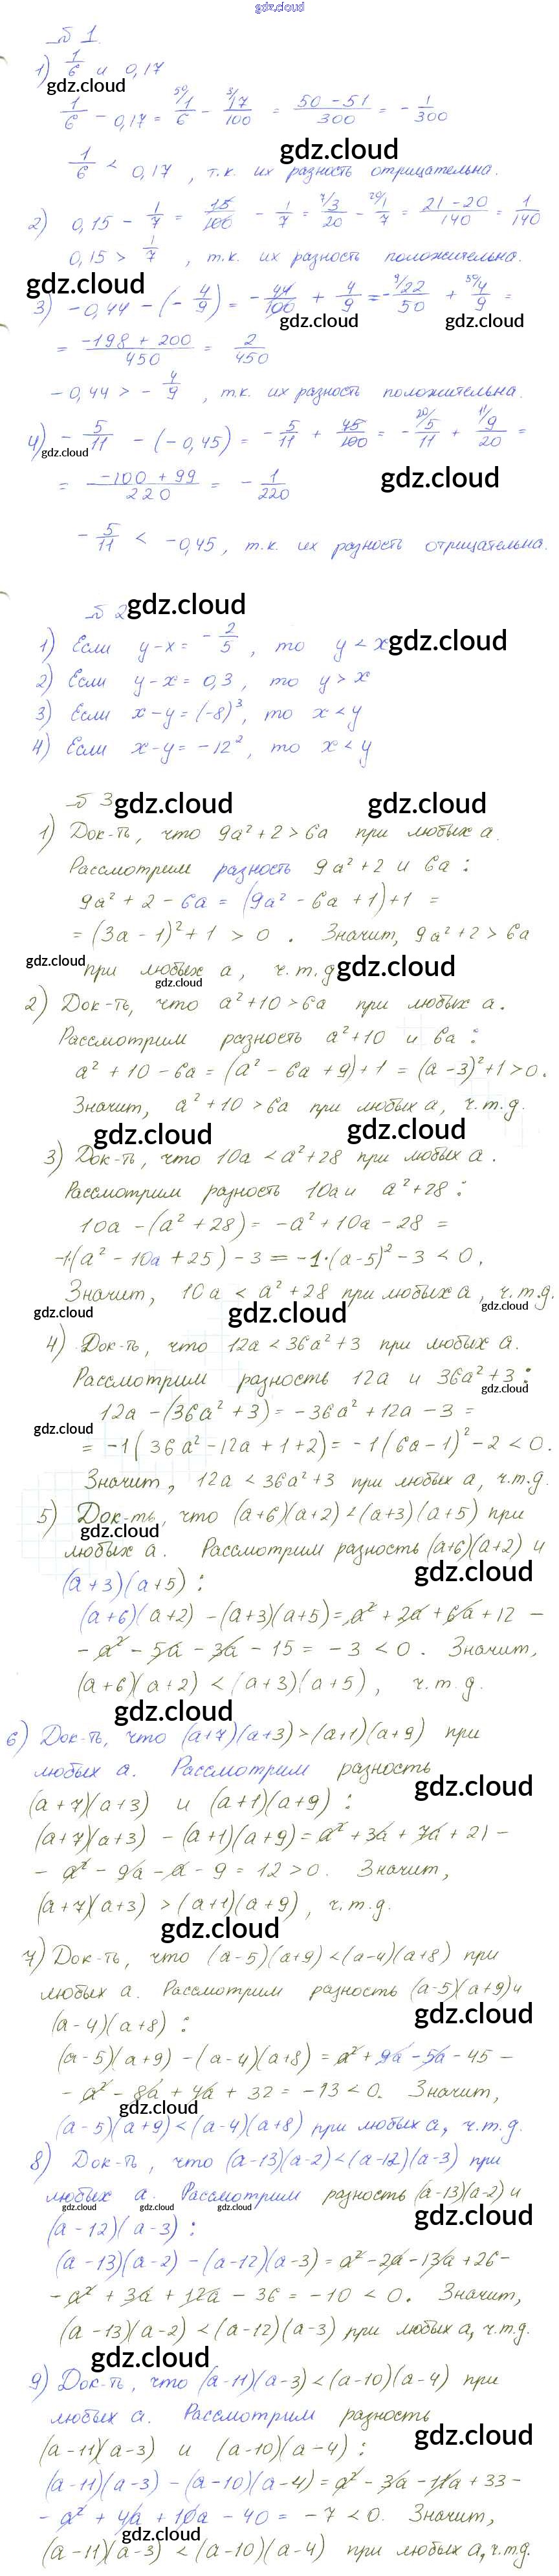 gdz.cloud
№ 1.
1) 1/6 и 0,17
gdz.cloud
1/6 - 0,17 = 50/1/6 - 3/17/100 = 50 - 51/300 = - 1/300
gdz.cloud
1/6 < 0,17, т.к. их разность отрицательна.
2) 0,15 - 1/7 = 15/100 - 1/7 = 7/3/20 - 20/1/7 = 21 - 20/140 = 1/140
0,15 > 1/7, т.к. их разность положительна.
gdz.cloud
3) -0,44 - (- 4/9) = - 44/100 + 4/9 = - 9/22/50 + 50/4/9 =
gdz.cloud gdz.cloud
= -198 + 200/450 = 2/450
-0,44 > - 4/9, т.к. их разность положительна.
4) - 5/11 - (-0,45) = - 5/11 + 45/100 = - 20/5/11 + 11/9/20 =
gdz.cloud
gdz.cloud
= -100 + 99/220 = - 1/220
- 5/11 < -0,45, т.к. их разность отрицательна.
№ 2 gdz.cloud
1) Если y-x = - 2/5, то y < x
gdz.cloud
2) Если y-x = 0,3, то y > x
3) Если x-y = (-8)³, то x < y
4) Если x-y = -12², то x < y
№ 3 gdz.cloud gdz.cloud
1) Док-ть, что 9a²+2>6a при любых a.
Рассмотрим разность 9a²+2 и 6a:
9a² + 2 - 6a = (9a² - 6a + 1)+1 =
= (3a - 1)²+1 > 0. Значит, 9a²+2 > 6a
gdz.cloud
при любых a, ч.т.д gdz.cloud
gdz.cloud
2) Док-ть, что a²+10>6a при любых a.
Рассмотрим разность a²+10 и 6a:
a² + 10 - 6a = (a² - 6a + 9)+1 = (a - 3)²+1>0.
Значит, a²+10>6a при любых a, ч.т.д.
gdz.cloud gdz.cloud
3) Док-ть, что 10a < a²+28 при любых a.
Рассмотрим разность 10a и a²+28:
10a - (a² + 28) = -a² + 10a - 28 =
-1(a² - 10a + 25) - 3 = -1·(a-5)² - 3 < 0,
Значит, 10a < a² + 28 при любых a, ч.т.д.
gdz.cloud gdz.cloud gdz.cloud
4) Док-ть, что 12a < 36a²+3 при любых a.
Рассмотрим разность 12a и 36a²+3:
gdz.cloud
12a - (36a² + 3) = -36a² + 12a - 3 =
gdz.cloud
= -1(36a² - 12a + 1 + 2) = -1(6a - 1)² - 2 < 0.
Значит, 12a < 36a²+3 при любых a, ч.т.д.
5) Док-ть, что (a+6)(a+2) < (a+3)(a+5) при
gdz.cloud
любых a. Рассмотрим разность (a+6)(a+2) и
gdz.cloud
(a+3)(a+5):
(a+6)(a+2) - (a+3)(a+5) = a² + 2a + 6a + 12 -
- a² - 5a - 3a - 15 = -3 < 0. Значит,
(a+6)(a+2) < (a+3)(a+5), ч.т.д.
gdz.cloud
6) Док-ть, что (a+7)(a+3)>(a+1)(a+9) при
любых a. Рассмотрим разность
gdz.cloud
(a+7)(a+3) и (a+1)(a+9):
(a+7)(a+3) - (a+1)(a+9) = a² + 3a + 7a + 21 -
- a² - 9a - a - 9 = 12 > 0. Значит,
(a+7)(a+3) > (a+1)(a+9), ч.т.д.
gdz.cloud
7) Док-ть, что (a-5)(a+9) < (a-4)(a+8) при
любых a. Рассмотрим разность (a-5)(a+9) и
gdz.cloud
(a-4)(a+8):
(a-5)(a+9) - (a-4)(a+8) = a² + 9a - 5a - 45 -
- a² - 8a + 4a + 32 = -13 < 0. Значит,
gdz.cloud
(a-5)(a+9) < (a-4)(a+8) при любых a, ч.т.д.
8) Док-ть, что (a-13)(a-2) < (a-12)(a-3) при
любых a. Рассмотрим разность (a-13)(a-2) и
gdz.cloud gdz.cloud gdz.cloud gdz.cloud
(a-12)(a-3):
(a-13)(a-2) - (a-12)(a-3) = a² - 2a - 13a + 26 -
- a² + 3a + 12a - 36 = -10 < 0. Значит,
(a-13)(a-2) < (a-12)(a-3) при любых a, ч.т.д.
gdz.cloud
9) Док-ть, что (a-11)(a-3) < (a-10)(a-4) при
любых a. Рассмотрим разность
gdz.cloud
(a-11)(a-3) и (a-10)(a-4):
(a-11)(a-3) - (a-10)(a-4) = a² - 3a - 11a + 33 -
- a² + 4a + 10a - 40 = -7 < 0. Значит,
gdz.cloud
(a-11)(a-3) < (a-10)(a-4) при любых a, ч.т.д.